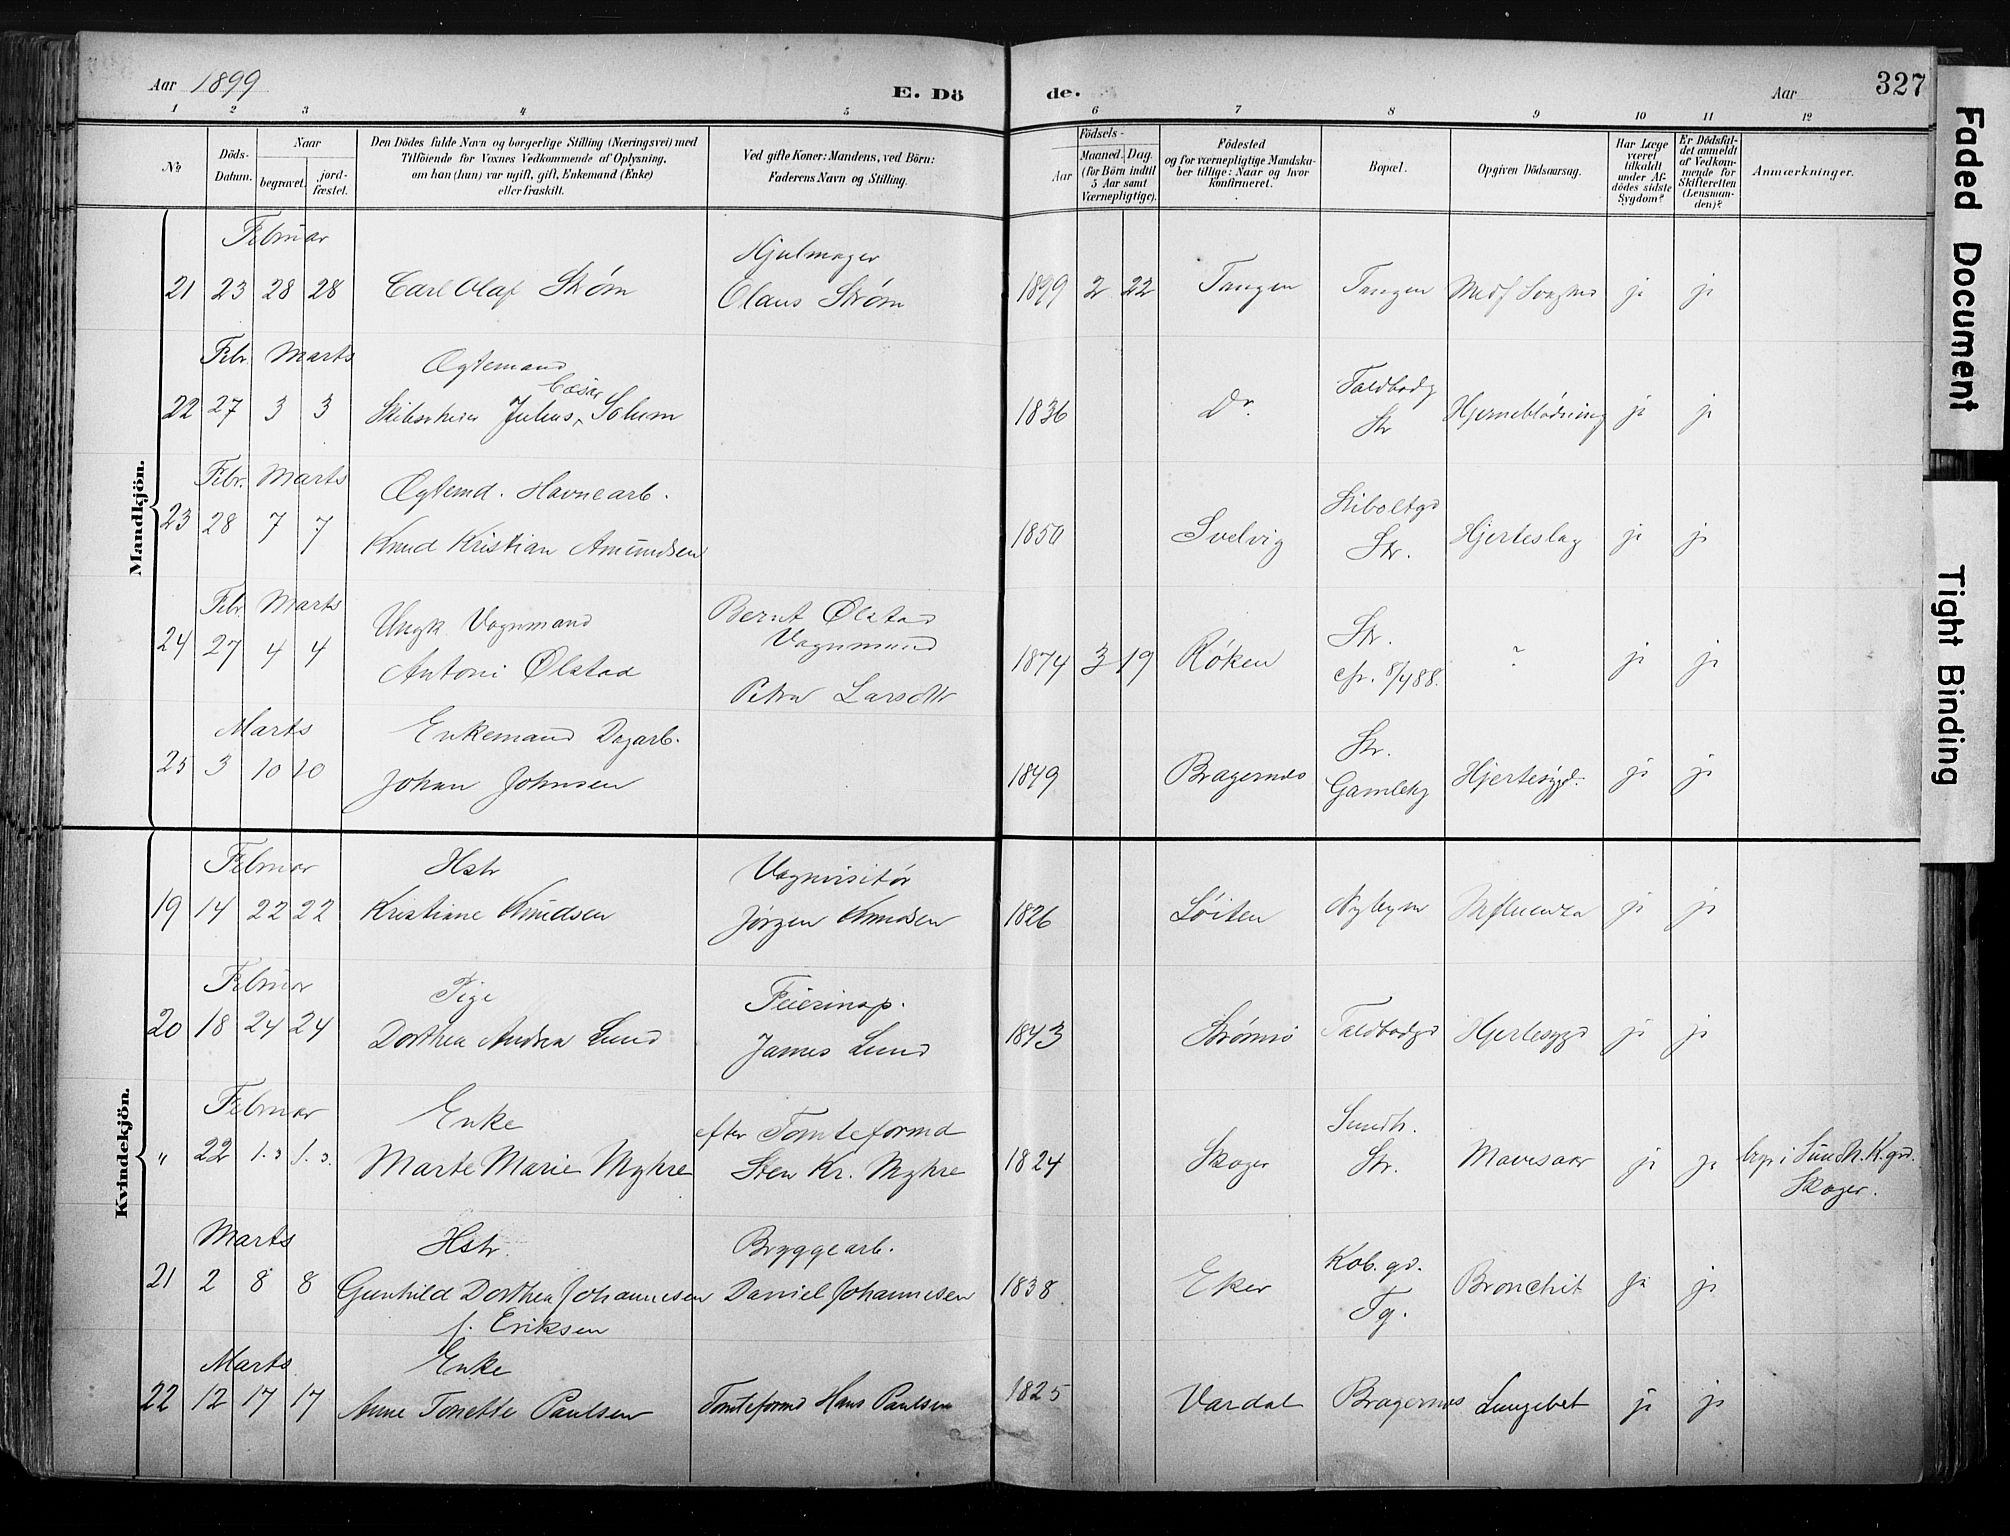 Aar 1899
E. Dö de.
Aar
327
1 2 3 4 5 6 7 8 9 10 11 12
No.
Döds-Datum.
Naar
begravet.
jord-fæstet.
Den Dödes fulde Navn og borgerlige Stilling (Næringsvei) med
Tilföiende for Voxnes Vedkommende af Oplysning,
om han (hun) var ugift, gift, Enkemand (Enke)
eller fraskilt.
Ved gifte Koner: Mandens, ved Börn:
Faderens Navn og Stilling.
Födsels-
Aar
Maaned.
Dag.
(for Börn indtil
5 Aar samt
Værnepligtige).
Födested
og for værnepligtige Mandska-
ber tillige: Naar og hvor
konfirmeret.
Bopæl.
Opgiven Dödsaarsag.
Har Læge
været
tilkaldt
under Af-
dödes sidste
Sygdom?
Er Dödsfal-
det anmeldt
af Vedkom-
mende for
Skifteretten
(Lensman-
den)?
Anmærkninger.
Mandkjön.
Februar
Hjulmager
21 23 28 28 Carl Olaf Strøm Olaus Strøm 1899 2 22 Tangen Tangen Medf Svaghed ja ja
Febr. Marts
Ægtemand
Cæsar
22 27 3 3 Julius, Solum 1836 Dr. Toldbodg Str Hjerneblødning ja ja
Febr. Marts
Ægtemd. Havnearb.
23 28 7 7 Knud Kristian Amundsen 1850 Svelvig Str. Hjerteslag ja ja
Febr Marts
Ungk. Vognmand
Bernt Ølstad
Vognmand
24 27 4 4 Antoni Ølstad Petra Larsdtr 1874 3 19 Røken Str. cfr. 8/488. ? ja ja
Marts
Enkemand Dagarb.
25 3 10 10 Johan Johnsen 1849 Bragernes Str. Gamleby Hjertesygd. ja ja
Kvindekjön.
Februar
Hstr
Vognvisitør
19 14 22 22 Kristiane Knudsen Jørgen Knudsen 1826 Løiten Nybyen Influenza ja ja
Februar
Pige
Feierinsp.
20 18 24 24 Dorthea Andrea Lund James Lund 1843 Strømsø Toldbodgd Hjertesygd ja ja
Februar
Enke
efter Tomteformd
" 22 1.3 1.3. Marte Marie Myhre Sten Kr. Myhre 1824 Skoger Sundh. Str. Mavesaar ja ja i Sundh. K.gd.
Skoger.
Marts
Hstr.
Bryggearb.
21 2 8 8 Gunhild Dorthea Johannesen Daniel Johannesen 1838 Eker Kob. gd. Tg. Bronchit ja ja
f. Eriksen
Marts
Enke
22 12 17 17 Anne Tonette Paulsen Tomteformd Hans Paulsen 1825 Vardal Bragernes Lungebet ja ja
Faded Document
Tight Binding